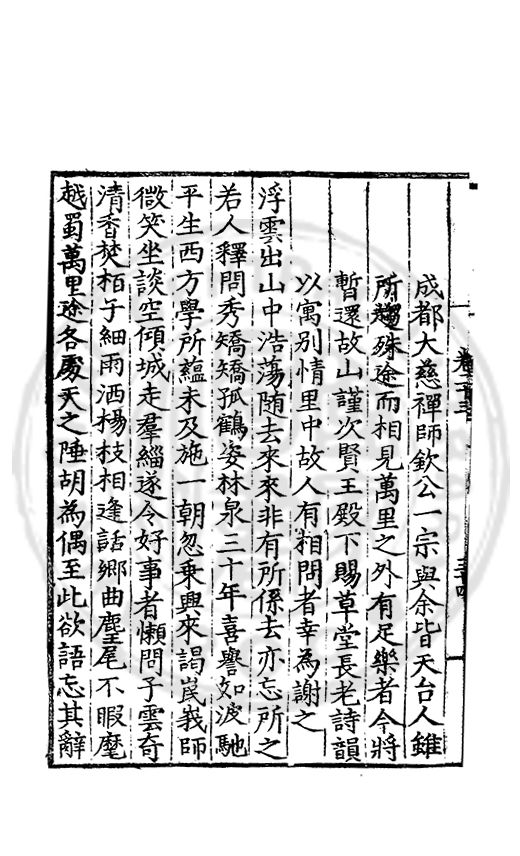 成都大慈禪師欽公一宗與余皆天台人錐
所趨殊途而相見萬里之外有足樂者今將
暫還故山謹次賢王殿下賜草堂長老詩韻
以寓別情里中故人有相問者幸為謝之
浮雲出山中浩蕩随去來來非有所係去亦忘所之
若人釋問秀矯矯孤鶴姿林泉三十年喜譽如波馳
平生西方學所蘊未及施一朝忽乗興來謁峩嵋師
微笑坐談空傾城走羣緇遂令好事者懶問子雲奇
清香焚栢子細雨洒楊枝相逢話郷曲麈尾不暇麾
越蜀萬里途各處天之陲胡為偶至此欲語忘其辭